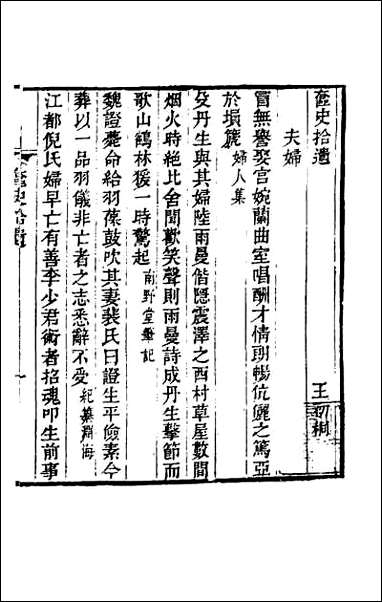 奩史拾遺
王初桐
夫婦
冒無譽娶宮婉蘭曲室唱酬才情朗暢伉儷之篤亞
於塤篪婦人集
殳丹生與其婦陸雨曼偕隱震澤之西村草屋數間
烟火時絶比舍聞歡笑聲則雨曼詩成丹生擊節而
歌山鶴林猨一時驚起南野堂筆記
魏證薨命給羽葆鼓吹其妻裴氏曰證生平儉素今
葬以一品羽儀非亡者之志悉辭不受紀纂淵海
江都倪氏婦早亡有善李少君術者招魂叩生前事
奩史拾遺
一